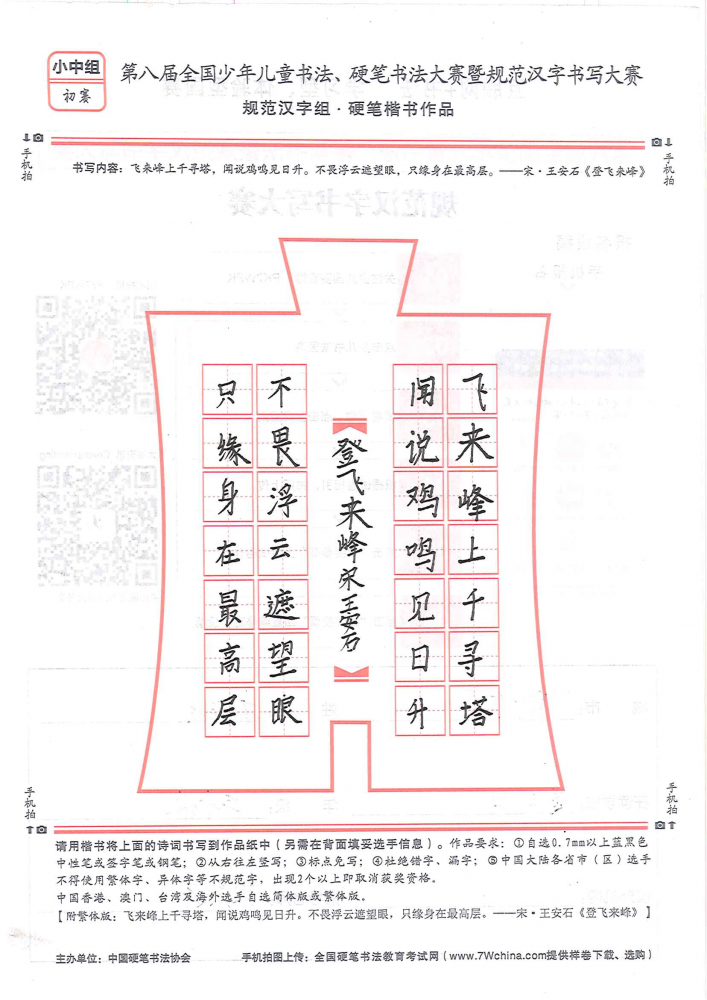 小中组
初赛
第八届全国少年儿童书法、硬笔书法大赛暨规范汉字书写大赛
规范汉字组·硬笔楷书作品
手机拍
手机拍
书写内容：飞来峰上千寻塔，闻说鸡鸣见日升。不畏浮云遮望眼，只缘身在最高层。——宋·王安石《登飞来峰》
飞来峰上千寻塔
闻说鸡鸣见日升
登飞来峰宋王安石
不畏浮云遮望眼
只缘身在最高层
手机拍
手机拍
请用楷书将上面的诗词书写到作品纸中（另需在背面填妥选手信息）。作品要求：①自选0.7mm以上蓝黑色
中性笔或签字笔或钢笔；②从右往左竖写；③标点免写；④杜绝错字、漏字；⑤中国大陆各省市（区）选手
不得使用繁体字、异体字等不规范字，出现2个以上即取消获奖资格。
中国香港、澳门、台湾及海外选手自选简体版或繁体版。
【附繁体版：飞来峰上千寻塔，闻说鸡鸣见日升。不畏浮云遮望眼，只缘身在最高层。——宋·王安石《登飞来峰》】
主办单位：中国硬笔书法协会
手机拍图上传：全国硬笔书法教育考试网（www.7Wchina.com提供样卷下载、选购）